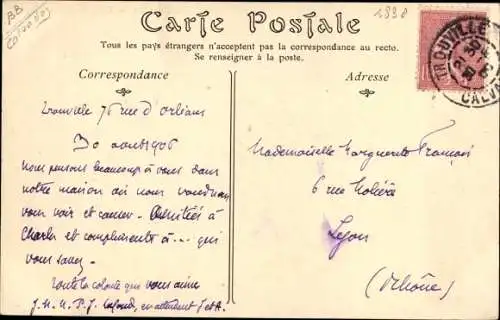 BB
Calvados
Carte Postale
Tous les pays étrangers n'acceptent pas la correspondance au recto.
Se renseigner à la poste.
Correspondance
Trouville 76 rue d'Orléans
30 août 1906
Nous pensons beaucoup à vous dans
notre maison où nous voudrions
vous voir et causer. Amitiés à
Charles et compliments à ... qui
vous savez.
Toute la colonie que vous aime
J. H. M. P. J. en attendant J et A.
Adresse
Mademoiselle Marguerite François
6 rue Molière
Lyon
(Rhône)
TROUVILLE
CALVA